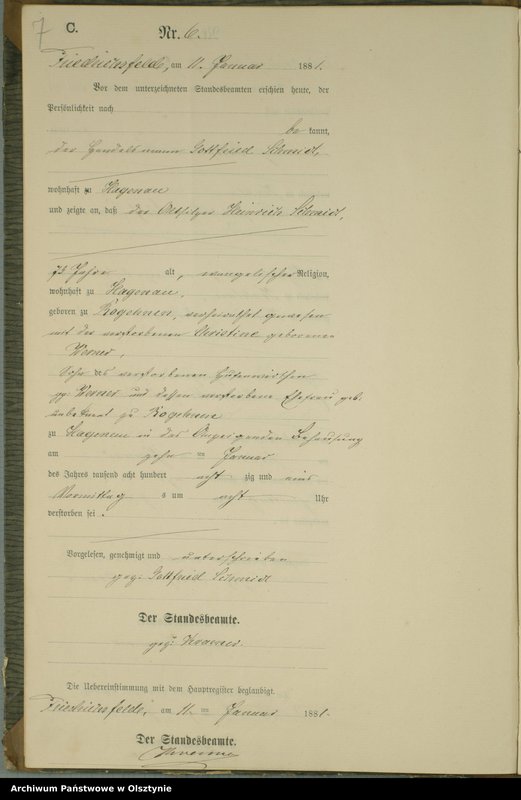 7 C. Nr. 6.
Friedrichsfelde, am 11. Januar 1881.
Vor dem unterzeichneten Standesbeamten erschien heute, der
Persönlichkeit nach
be kannt,
der Handelsmann Gottfried Schmidt,
wohnhaft zu Hagenau
und zeigte an, daß der Altsitzer Heinrich Schmidt,
72 Jahre alt, evangelischer Religion,
wohnhaft zu Hagenau,
geboren zu Kogehnen, verheirathet gewesen
mit der verstorbenen Christine geborenen
Werner,
Sohn des verstorbenen
Werner und dessen verstorbene Ehefrau geb.
unbekannt zu Kogehnen
zu Hagenau in des Behausung
am zehn ten Januar
des Jahres tausend acht hundert acht zig und eins
Vormittag s um acht Uhr
verstorben sei.
Vorgelesen, genehmigt und unterschrieben
gez: Gottfried Schmidt
Der Standesbeamte.
gez:
Die Uebereinstimmung mit dem Hauptregister beglaubigt.
Friedrichsfelde, am 11. ten Januar 1881.
Der Standesbeamte.
Archiwum Państwowe w Olsztynie